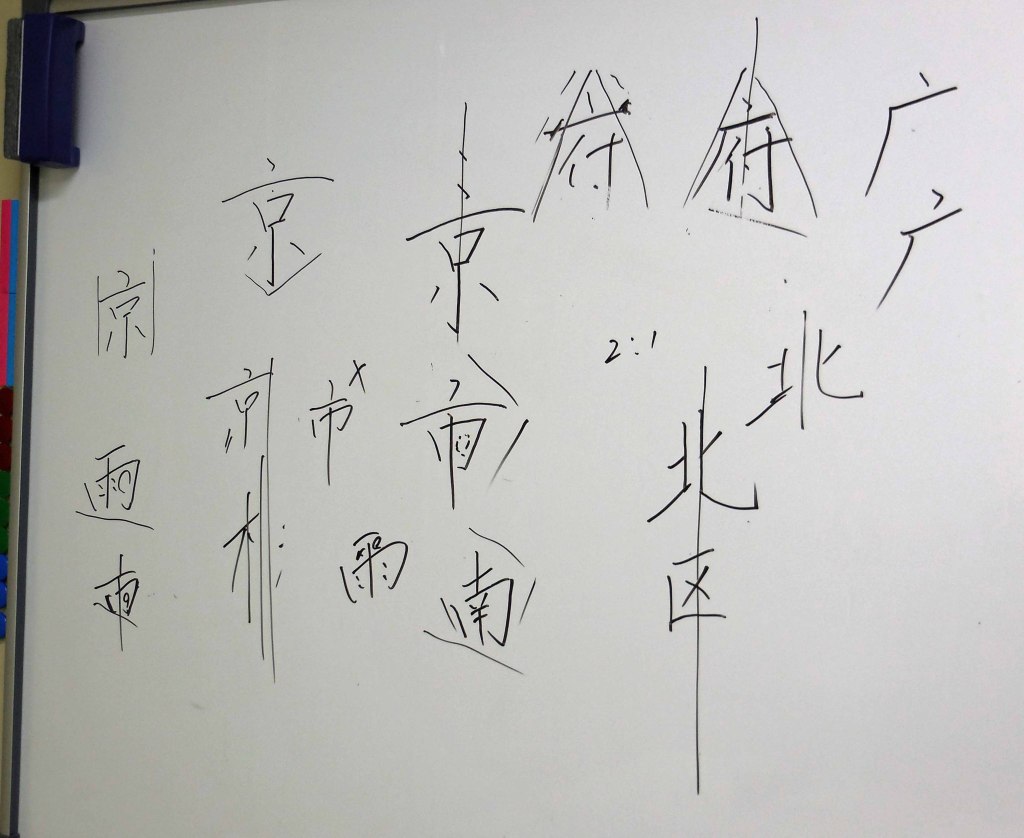 府 府 广
京 京 广
京
京 市 × 市 2:1 北
北
雨 木 雨 南 区